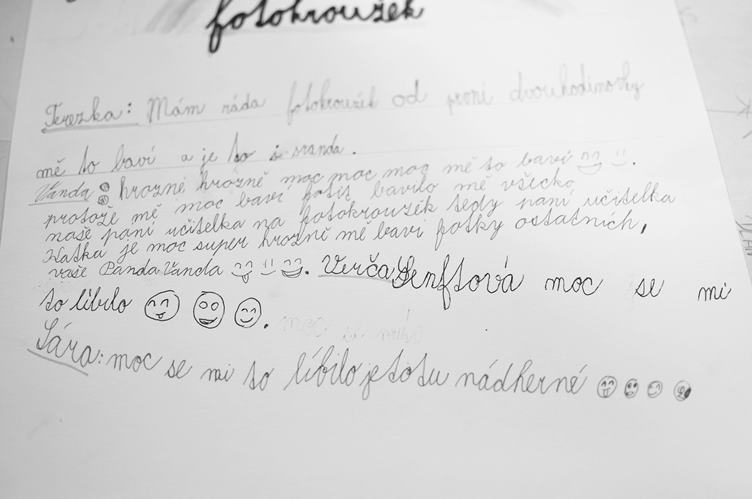 fotokroužek
Terezka: Mám ráda fotokroužek od první dvouhodinovky
mě to baví a je to i sranda.
Vanda: hrozně hrozně moc moc moc mě to baví
protože mě moc baví fotit bavilo mě všecko
naše paní učitelka na fotokroužek tedy paní učitelka
Katka je moc super hrozně mě baví fotky ostatních,
vaše Panda Vanda. Verča Šenftová moc se mi
to líbilo.
Sára: moc se mi to líbilo je to tu nádherné